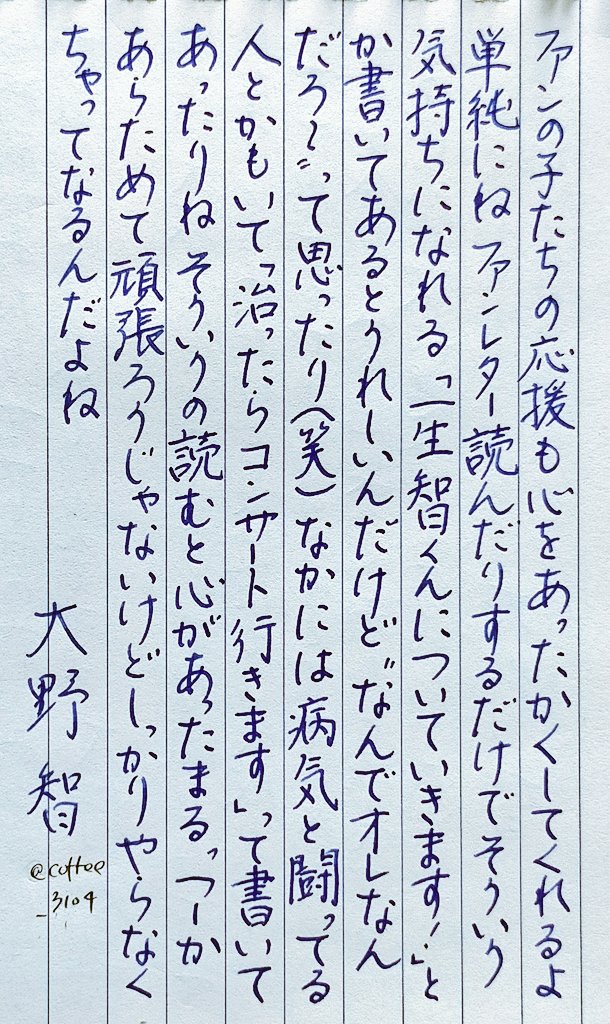 ファンの子たちの応援も心をあったかくしてくれるよ
単純にね ファンレター読んだりするだけでそういう
気持ちになれる「一生智くんについていきます！」と
か書いてあるとうれしいんだけど“なんでオレなん
だろ〜”って思ったり（笑）なかには病気と闘ってる
人とかもいて「治ったらコンサート行きます」って書いて
あったりね そういうの読むと心があったまる つーか
あらためて頑張ろうじゃないけどしっかりやらなく
ちゃってなるんだよね
大野 智
@coffee
_3104